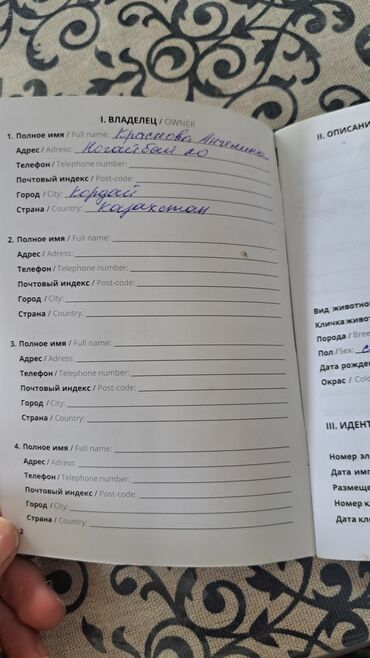 I. ВЛАДЕЛЕЦ / OWNER
1. Полное имя / Full name: Краснова Ангелина
Адрес / Adress: Ногайбай 20
Телефон / Telephone number:
Почтовый индекс / Post-code:
Город / City: Кордай
Страна / Country: Казахстан
2. Полное имя / Full name:
Адрес / Adress:
Телефон / Telephone number:
Почтовый индекс / Post-code:
Город / City:
Страна / Country:
3. Полное имя / Full name:
Адрес / Adress:
Телефон / Telephone number:
Почтовый индекс / Post-code:
Город / City:
Страна / Country:
4. Полное имя / Full name:
Адрес / Adress:
Телефон / Telephone number:
Почтовый индекс / Post-code:
Город / City:
Страна / Country:
2
II. ОПИСАНИ
Вид животно
Кличка живот
Порода / Bree
Пол / Sex:
Дата рожден
Окрас / Colo
III. ИДЕНТ
Номер эл
Дата имп
Размеще
Номер кл
Дата кле